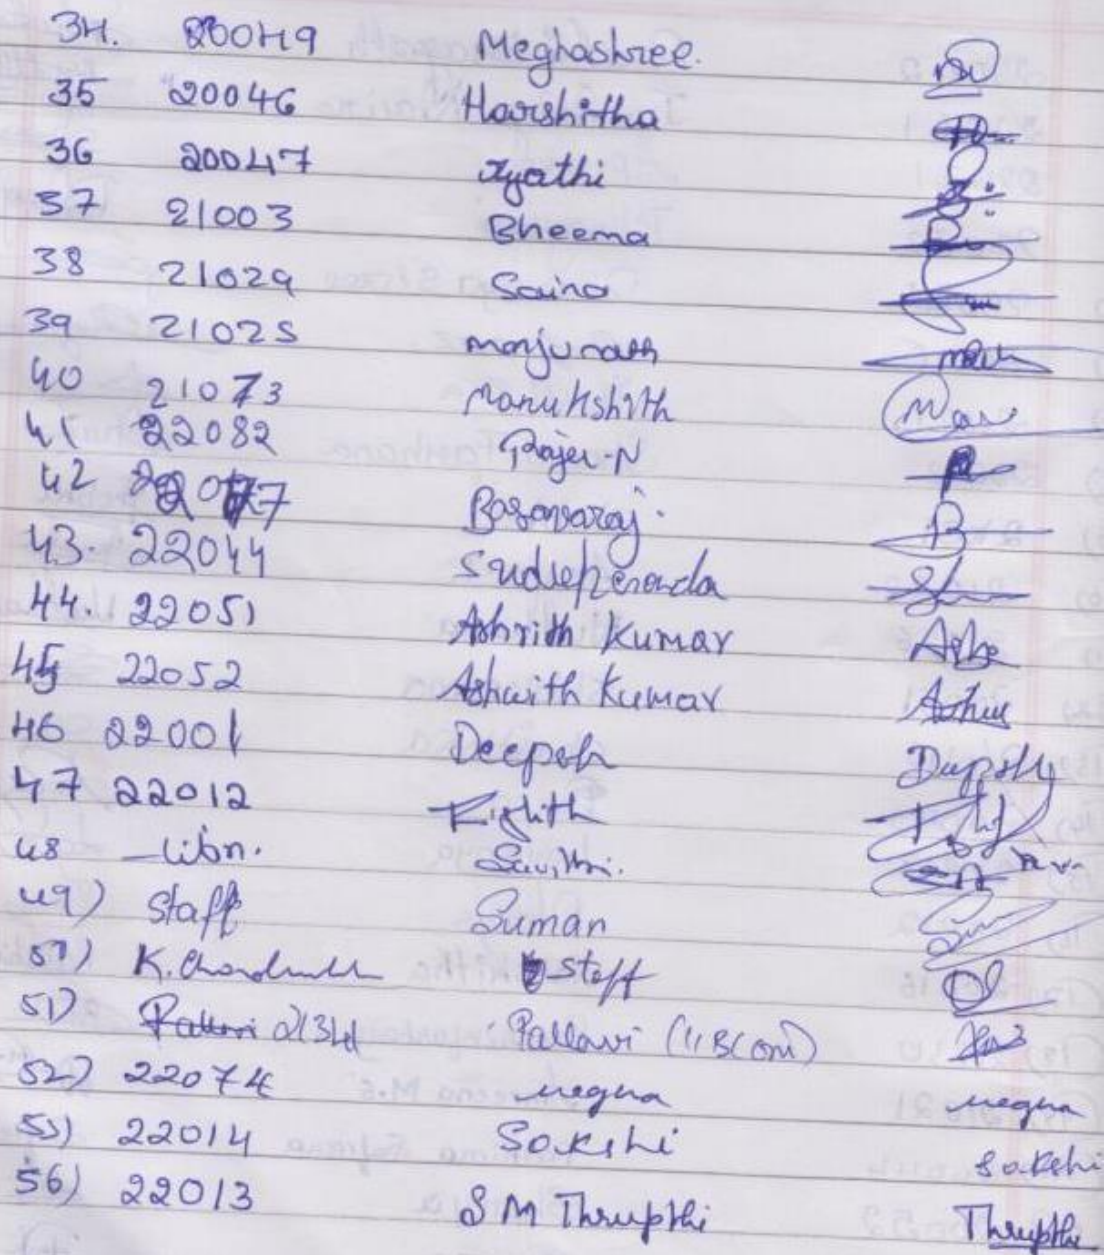 34. 20049 Meghashree.
35 20046 Harshitha
36 20047 Jyathi
37 21003 Bheema
38 21029 Saina
39 21025 manjunath
40 21073 Manukshith
41 22082 Rajev-N
42 Basavaraj.
43. 22044
44. 22051 Ashrith Kumar
45 22052 Ashwith Kumar
46 22001 Deepesh
47 22012
48 Libn. Savithri.
49) Staff Suman
50) K. staff
51) Pallavi (II BCom)
52) 22074 megna megna
53) 22014 Sakshi Sakshi
56) 22013 S M Thrupthi Thrupthi